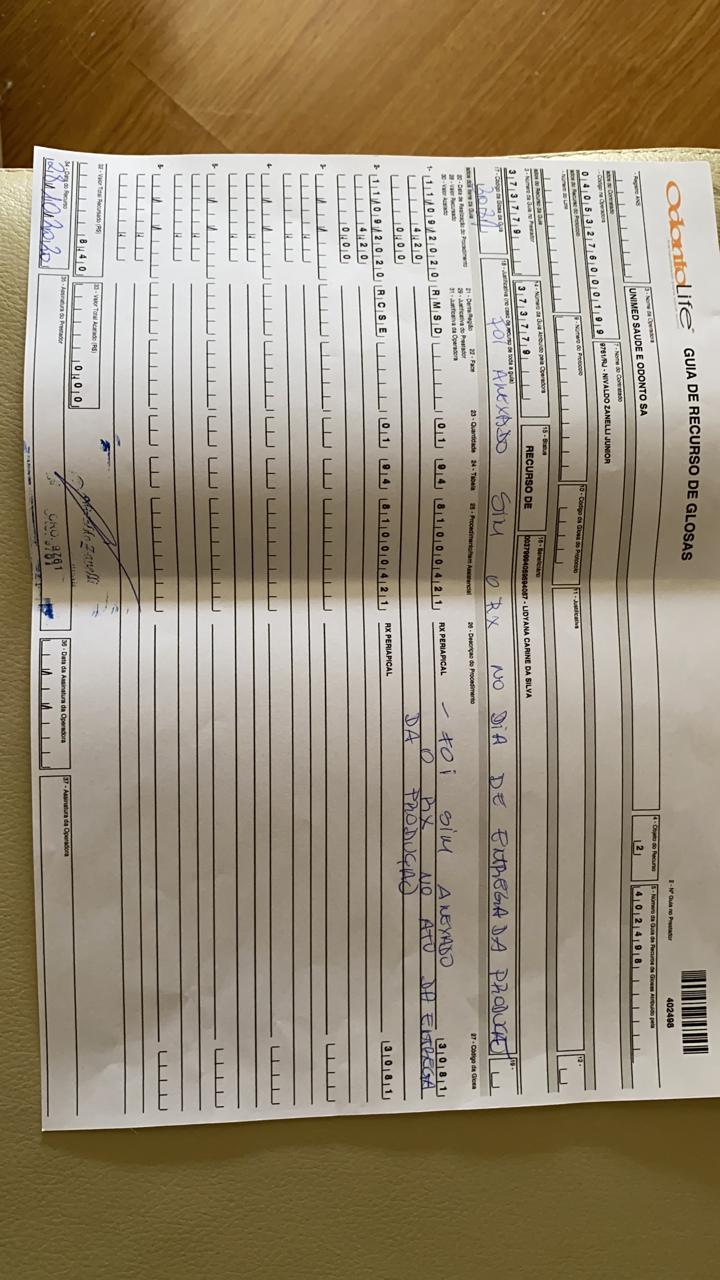 OdontoLife
GUIA DE RECURSO DE GLOSAS
2 - Nº Guia no Prestador
402498
1 - Registro ANS
3 - Nome da Operadora
UNIMED SAUDE E ODONTO SA
4 - Objeto do Recurso
2
5 - Número da Guia de Recurso de Glosas Atribuído pela
402498
6 - Código na Operadora
04053276000199
7 - Nome do Contratado
9761/RJ - NIVALDO ZANELLI JUNIOR
8 - Número do Lote
9 - Número do Protocolo
10 - Código da Glosa do Protocolo
11 - Justificativa
12 -
13 - Número da Guia no Prestador
373779
14 - Número da Guia Atribuído pela Operadora
373779
15 - Status
RECURSO DE
16 - Beneficiário
LIDYANA CARINE DA SILVA
17 - Código da Glosa da Guia
18 - Justificativa (no caso de recurso de toda a guia)
19 -
FOI ANEXADO SIM O RX NO DIA DE ENTREGA DA PRODUÇÃO
20 - Data de Realização do Procedimento
21 - Dente/Região
22 - Face
23 - Quantidade
24 - Tabela
25 - Procedimento/Item Assistencial
26 - Descrição do Procedimento
27 - Código da Glosa
28 - Valor Recursado
29 - Justificativa do Prestador
30 - Valor Acatado
31 - Justificativa da Operadora
1- 11/09/2020 RMSD 01 94 81000421 RX PERIAPICAL 3081
- FOI SIM ANEXADO
4,20
O RX NO ATO DA ENTREGA
0,00
DA PRODUÇÃO
2- 11/09/2020 RCSE 01 94 81000421 RX PERIAPICAL 3081
4,20
0,00
3-
4-
5-
6-
32 - Valor Total Recursado (R$)
8,40
33 - Valor Total Acatado (R$)
0,00
34 - Data do Recurso
35 - Assinatura do Prestador
36 - Data da Assinatura da Operadora
37 - Assinatura da Operadora